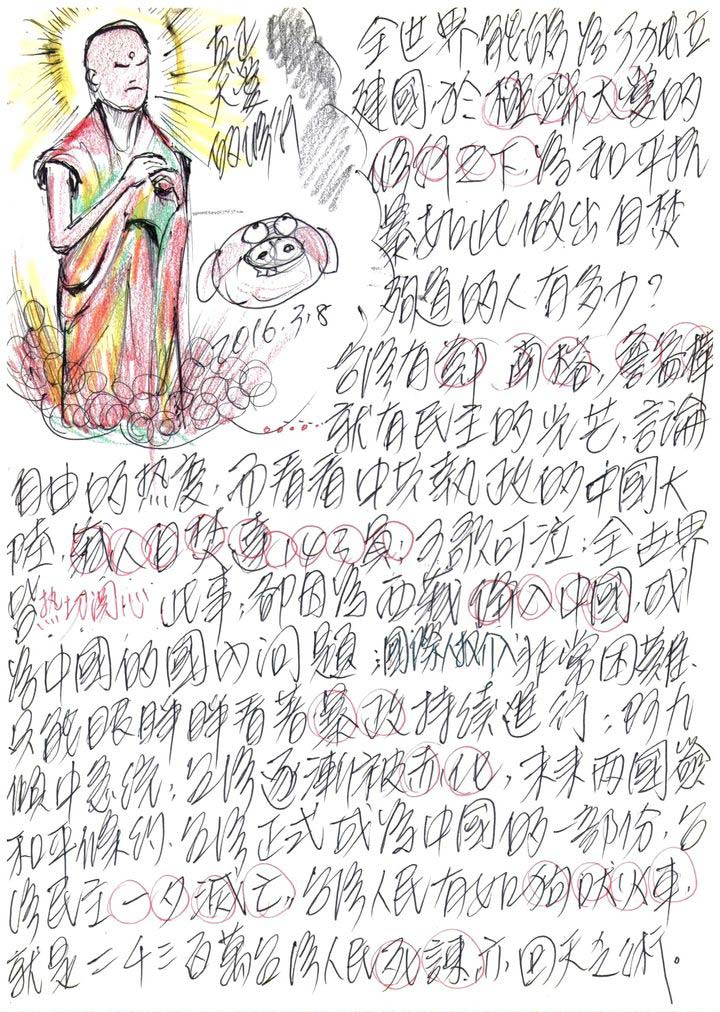 真正
大愛
的修行
2016.3.8
全世界能夠為了獨立
建國,於極端大愛的
修行之下,為和平抗
暴,如此做出自焚
殉道的人有多少?
台灣有鄭南榕,詹益樺
就有民主的光芒,言論
自由的热度,而看看中共執政的中國大
陸,藏人自焚達143員,可歌可泣;全世界
皆热切関心此事;卻因為西藏併入中國,成
為中國的國內问題;國際人权介入非常困難,
只能眼睜睜看著暴政持续進行;阿九
傾中急統;台灣逐漸被赤化,未來兩國簽
和平條约,台灣正式成為中國的一部份,台
灣民主一夕滅亡,台灣人民有如狗吠火車,
就是二千三百萬台灣人民死諫亦回天乏術。